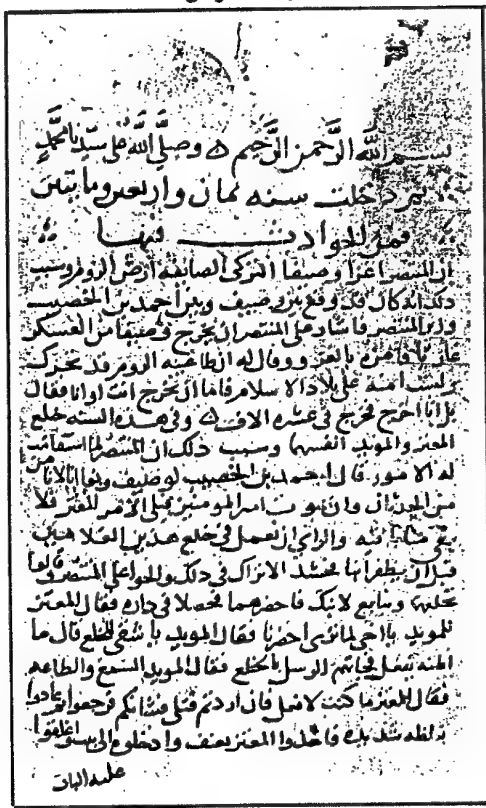 بسم الله الرحمن الرحيم ه وصلى الله على سيدنا محمد
ثم دخلت سنه ثمان واربعين ومايتين
فمن الحوادث فيها
ان المنتصر اغزا وصيفا التركي الصائفه ارض الروم وسبب
ذلك انه كان قد وقع بين وصيف وبين احمد بن الخصيب
وزير المنتصر فاشار على المنتصر ان يخرج وصيفا من العسكر
غازيا فامره بالغزو وقال له ان طاغيه الروم قد تحرك
ولست امنه على بلاد الاسلام فاما ان تخرج انت او انا فقال
بل انا اخرج فخرج في عشره الاف ه وفي هذه السنه خلع
المعتز والمويد انفسهما وسبب ذلك ان المنتصر لما استقامت
له الامور قال احمد بن الخصيب لوصيف وبغا انا لا نامن
من الحدثان وان يموت امير المومنين فيلي الامر المعتز فلا
يبقي منا باقيه والراي ان نعمل في خلع هذين الغلامين
قبل ان يظفرا بنا فجد الاتراك في ذلك والحوا على المنتصر وقالوا
نخلعهما ونبايع لابنك فاحضرهما فجعلا في دار فقال المعتز
للمويد يا اخي لم احضرنا فقال المويد يا شقي للخلع قال ما
اظنه يفعل فجاتهم الرسل بالخلع فقال المويد السمع والطاعه
فقال المعتز ما كنت لافعل فان اردتم قتلي فشانكم فرجعوا ثم عادوا
بغلظه شديده فاخذوا المعتز بعنف وادخلوه الى بيت واغلقوا
عليه الباب